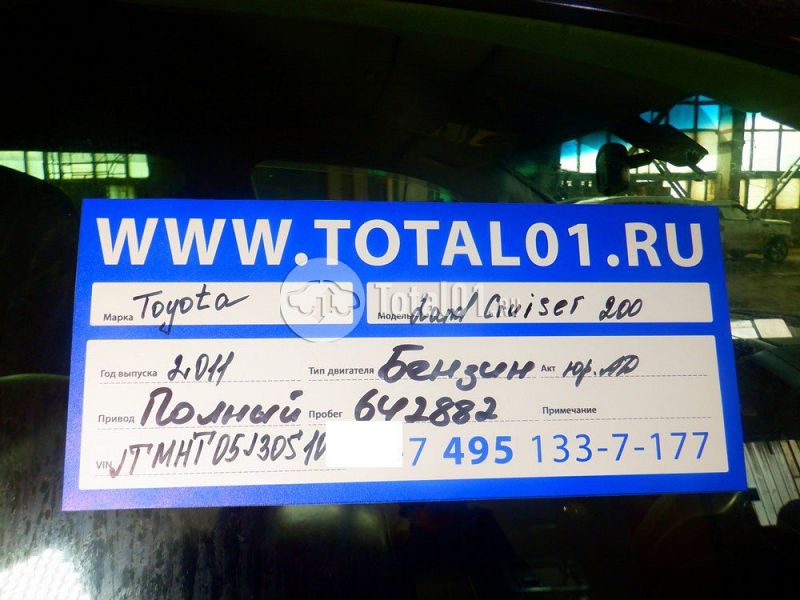 WWW.TOTAL01.RU
Марка Toyota Модель Land Cruiser 200
Total01.ru
Год выпуска 2011 Тип двигателя Бензин Акт юр.АД
Привод Полный Пробег 642882 Примечание
VIN JTMHT05J30510 -7 495 133-7-177